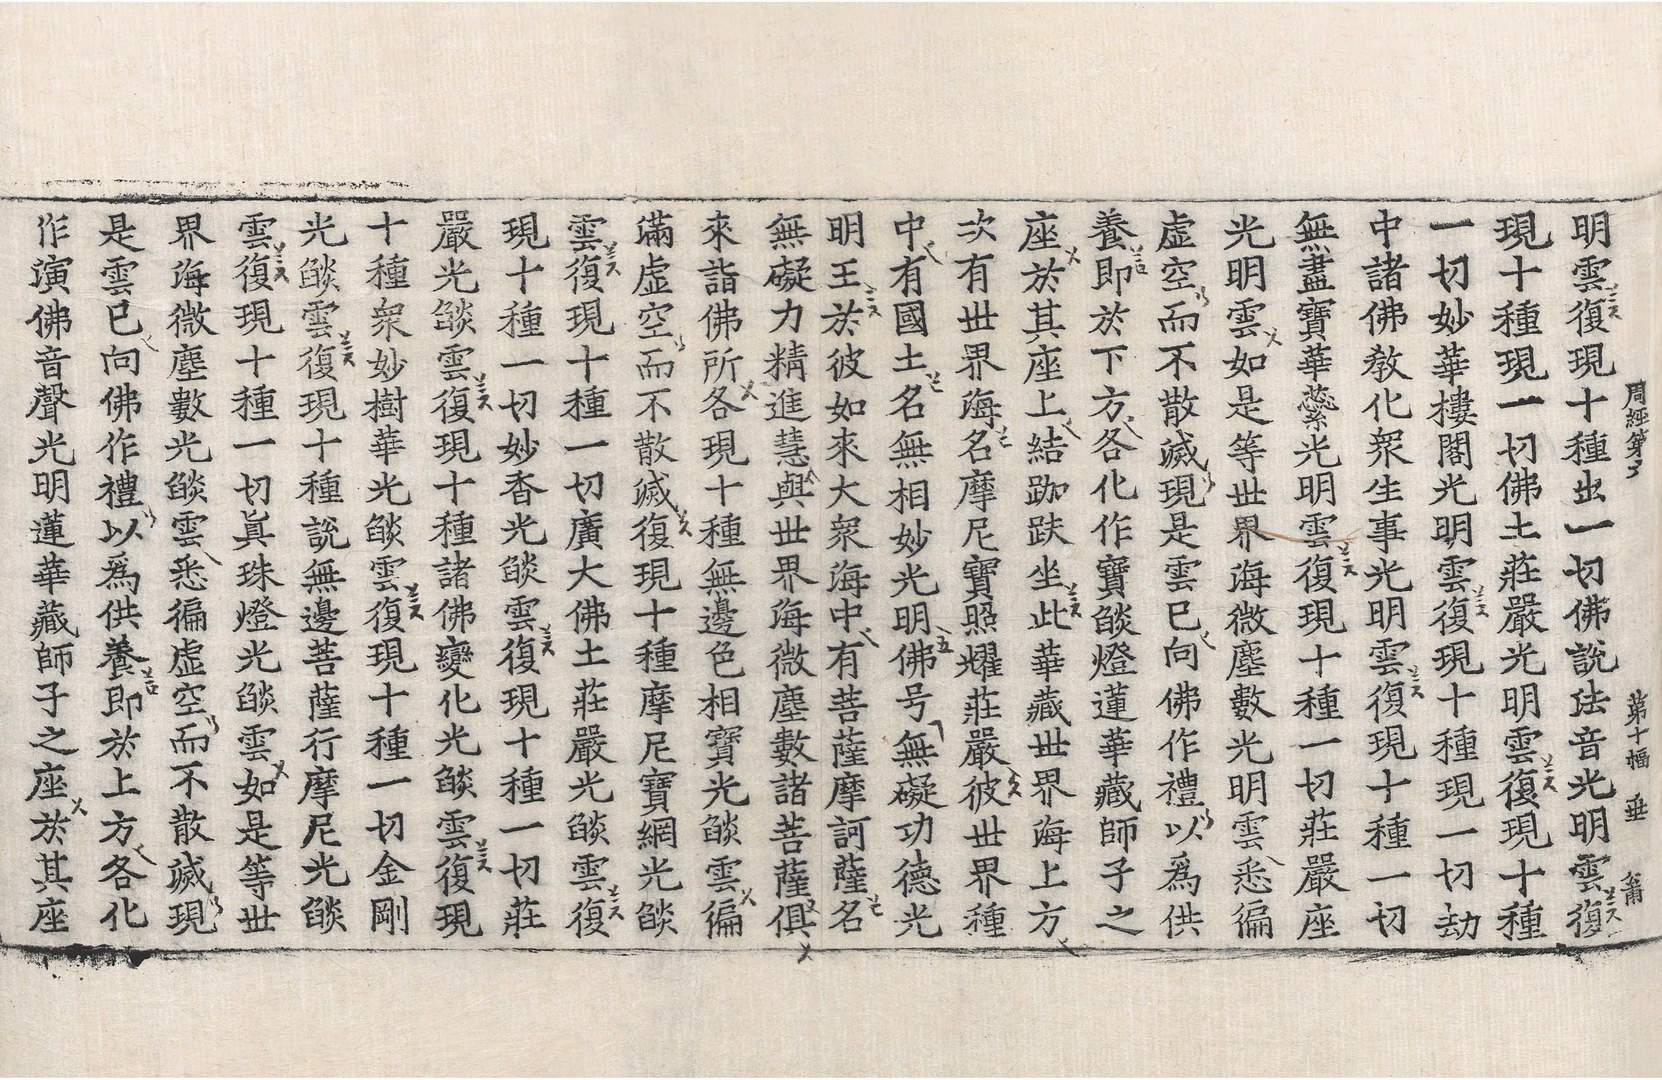 周經第六 第十幅 垂
明雲復現十種出一切佛說法音光明雲復
現十種現一切佛土莊嚴光明雲復現十種
一切妙華樓閣光明雲復現十種現一切劫
中諸佛教化衆生事光明雲復現十種一切
無盡寶華蘂光明雲復現十種一切莊嚴座
光明雲如是等世界海微塵數光明雲悉徧
虛空而不散滅現是雲已向佛作禮以爲供
養即於下方各化作寶㷔燈蓮華藏師子之
座於其座上結跏趺坐此華藏世界海上方
次有世界海名摩尼寶照耀莊嚴彼世界種
中有國土名無相妙光明佛号無礙功德光
明王於彼如來大衆海中有菩薩摩訶薩名
無礙力精進慧與世界海微塵數諸菩薩俱
來詣佛所各現十種無邊色相寶光㷔雲徧
滿虛空而不散滅復現十種摩尼寶網光㷔
雲復現十種一切廣大佛土莊嚴光㷔雲復
現十種一切妙香光㷔雲復現十種一切莊
嚴光㷔雲復現十種諸佛變化光㷔雲復現
十種衆妙樹華光㷔雲復現十種一切金剛
光㷔雲復現十種說無邊菩薩行摩尼光㷔
雲復現十種一切眞珠燈光㷔雲如是等世
界海微塵數光㷔雲悉徧虛空而不散滅現
是雲已向佛作禮以爲供養即於上方各化
作演佛音聲光明蓮華藏師子之座於其座